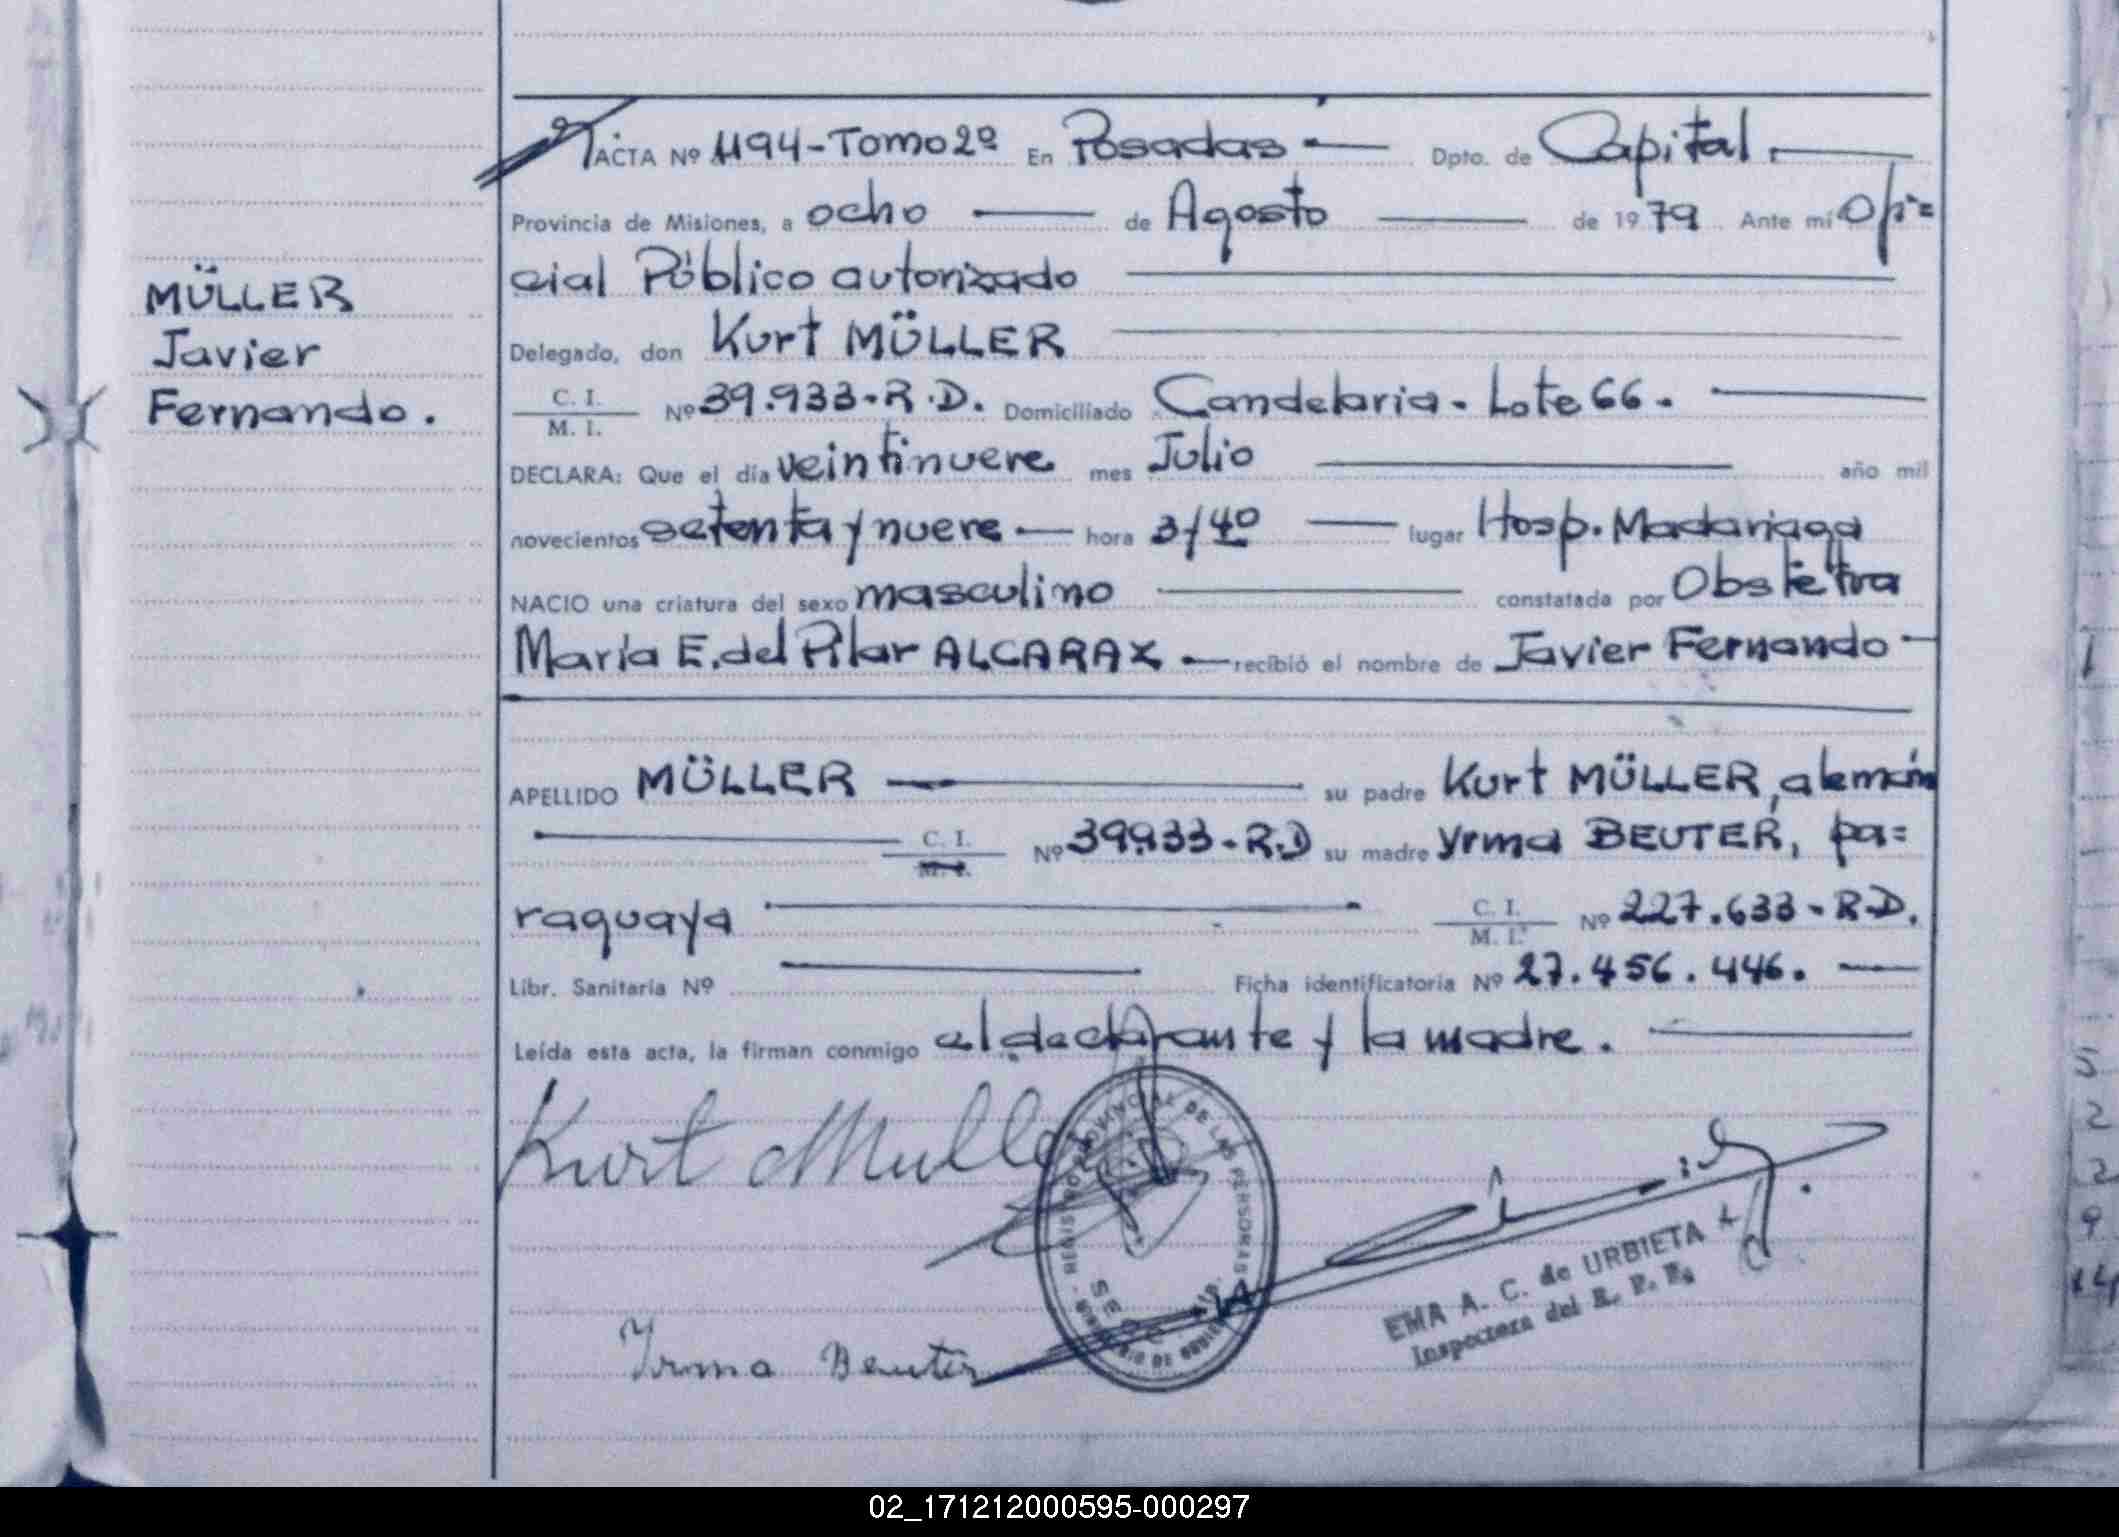 MÜLLER
Javier
Fernando.
ACTA Nº 1194-Tomo 2º En Posadas Dpto. de Capital.
Provincia de Misiones, a ocho de Agosto de 1979 Ante mí Ofi=
cial Público autorizado
Delegado, don Kurt MÜLLER
C. I. / M. I. Nº 39.933-R.D. Domiciliado Candelaria - Lote 66.
DECLARA: Que el día veintinueve mes Julio año mil
novecientos setenta y nueve hora 3/40 lugar Hosp. Madariaga
NACIO una criatura del sexo masculino constatada por Obstetra
María E. del Pilar ALCARAX recibió el nombre de Javier Fernando
APELLIDO MÜLLER su padre Kurt MÜLLER, alemán
C. I. / M. I. Nº 39933-R.D su madre Yrma BEUTER, pa=
raguaya C. I. / M. I. Nº 227.633-R.D.
Libr. Sanitaria Nº Ficha identificatoria Nº 27.456.446.
Leída esta acta, la firman conmigo el declarante y la madre.
Kurt Muller
REGISTRO PROVINCIAL DE LAS PERSONAS
Yrma Beuter
EMA A. C. de URBIETA
Inspectora del R. P. P.
02_171212000595-000297